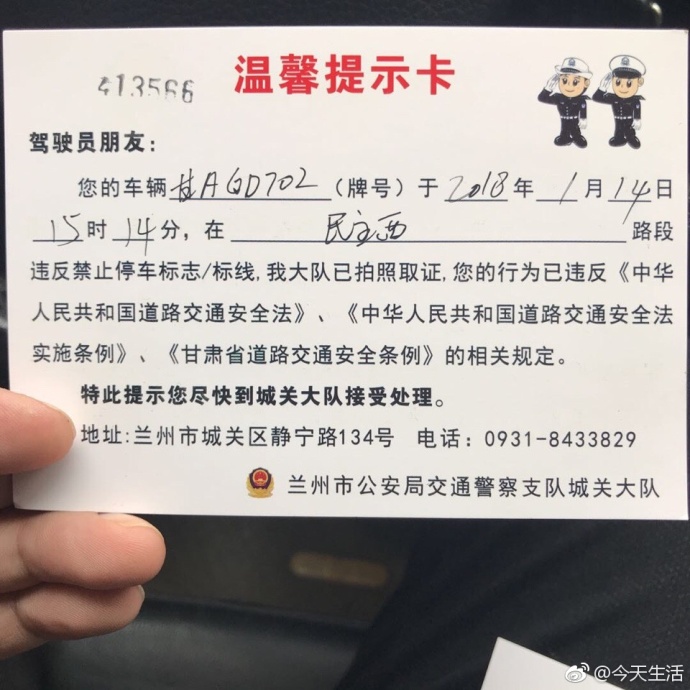 温馨提示卡
413566
驾驶员朋友：
您的车辆甘AGD702（牌号）于2018年1月14日
15时14分，在民主西路段
违反禁止停车标志/标线，我大队已拍照取证，您的行为已违反《中华
人民共和国道路交通安全法》、《中华人民共和国道路交通安全法
实施条例》、《甘肃省道路交通安全条例》的相关规定。
特此提示您尽快到城关大队接受处理。
地址：兰州市城关区静宁路134号 电话：0931-8433829
兰州市公安局交通警察支队城关大队
@今天生活